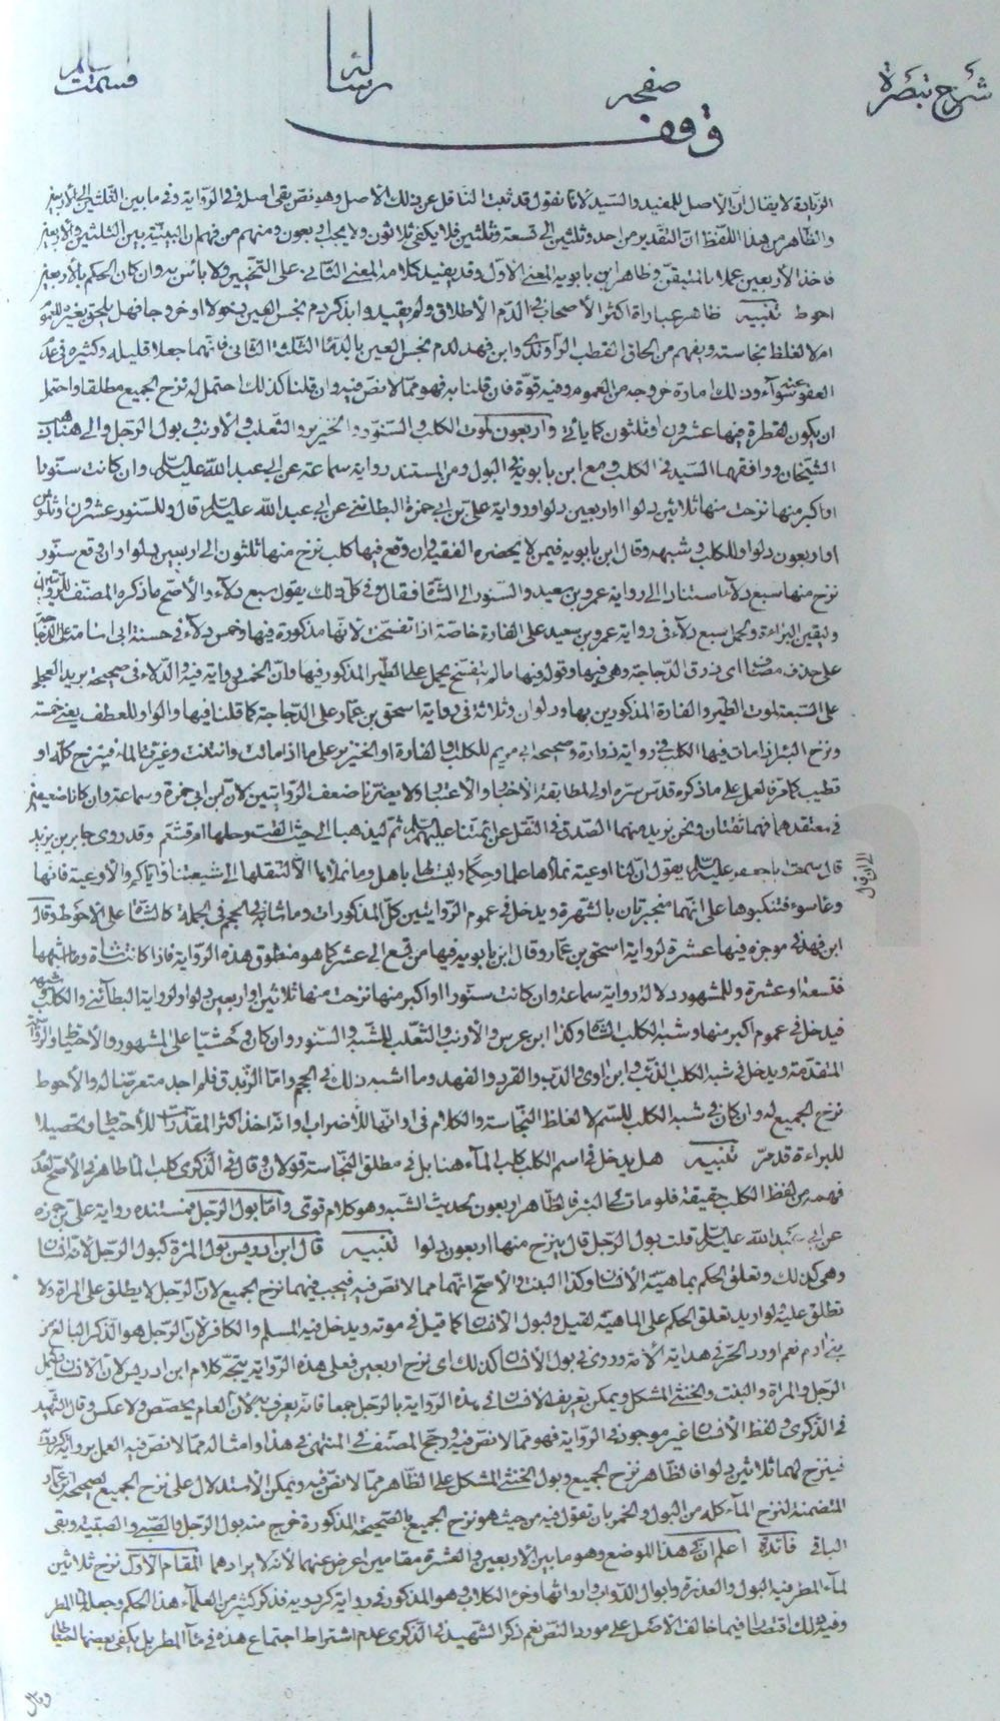 شرح تبصرة
صفحه
رسالة
قسمت
وقف
الزيادة لا يقال ان الاصل للمفيد والسيد لانا نقول قد ثبت الناقل عن ذلك الاصل وهو نص بقى اصله فى الرواية وفى ما بين الثلثين الى الاربعين
والظاهر من هذا اللفظ ان التقدير من احد وثلثين الى تسعة وثلثين فلا يكفى ثلاثون ولا يجب اربعون ومنهم من فهم ان البينية بين الثلثين والاربعين
فاخذ الاربعين عملا بالمتيقن وظاهر ابن بابويه المعنى الاول وقد يفيد كلامه المعنى الثانى على التخيير ولا باس به وان كان الحكم بالاربعين
احوط تنبيه ظاهر عبارة اكثر الاصحاب فى الدم الاطلاق ولم يقيدوا بذكر دم نجس العين دخولا او خروجا فهل يلحق بغيره للعموم
ام لا لغلظ نجاسته ويفهم من الحاق القطب الراوندى وابن فهد لدم نجس العين بالدماء الثلثة الثانى فانهما جعلا قليله وكثيره فى عدم
العفو عنه سواء وذلك امارة خروجه من العموم وفيه قوة فان قلنا به فهو مما لا نص فيه وان قلنا كذلك احتمل له نزح الجميع مطلقا واحتمل
ان يكون لقطرة فيها عشرون او ثلثون كما ياتى واربعون لموت الكلب والسنور والخنزير والثعلب والارنب وبول الرجل والى هنا ذهب
الشيخان ووافقهما السيد فى الكلب ومع ابن بابويه فى البول ومن المستند رواية سماعة عن ابى عبد الله عليه السلام وان كانت سنورا
او اكبر منها نزحت منها ثلاثين دلوا او اربعين دلوا ورواية على بن ابى حمزة البطائنى عن ابى عبد الله عليه السلام قال وللسنور عشرون او ثلثون
او اربعون دلوا وللكلب وشبهه وقال ابن بابويه فيمن لا يحضره الفقيه وان وقع فيها كلب نزح منها ثلثون الى اربعين دلوا وان وقع سنور
نزح منها سبع دلاء استنادا الى رواية عمرو بن سعيد والسنور الى الشاة فقال فى كل ذلك يقول سبع دلاء والاصح ما ذكره المصنف للروايتين
وليقين البراءة وحمل سبع دلاء فى رواية عمرو بن سعيد على الفارة خاصة اذا تفسخت لانها مذكورة فيها وخمس دلاء فى حسنة ابى اسامة على الدجاجة
على حذف مضاف اى ذرق الدجاجة وهى فيها وقوله فيها ما لم يتفسخ يحمل على الطير المذكور فيها وان الخمس رواية فيه والدلاء فى صحيحة بريد العجلى
على السبعة لموت الطير والفارة المذكورين بها ودلوان وثلاثة فى رواية اسحق بن عمار على الدجاجة كما قلنا فيها والواو للعطف يعنى خمسة
ونزح البئر اذا مات فيها الكلب فى رواية زرارة وصحيحة ابى مريم للكلب او الفارة او الخنزير على ما اذا ماتت وانتنت وغيرت الماء فينزح كله او
تطيب كما مر فالعمل على ما ذكره قدس سره اولى لمطابقة الاخبار والاعتبار ولا يضرنا ضعف الروايتين لان ابن ابى حمزة وسماعة وان كانا ضعيفين
فى معتقدهما فهما ثقتان ونحن نريد منهما الصدق فى النقل عن ائمتنا عليهم السلام ثم لنذهب الى حيث القت رحلها ام قشعم وقد روى جابر بن يزيد
قال سمعت ابا جعفر عليه السلام يقول ان لنا اوعية نملاها علما وحكما وليست لها باهل وما نملاها الا لتنقلها الى شيعتنا واياكم والاوعية فانها
وعاء سوء فتنكبوها على انهما منجبرتان بالشهرة ويدخل فى عموم الروايتين كل المذكورات وما شابهها بالحجم فى الجملة كالشاة على الاحوط وقال
ابن فهد فى موجزه فيها عشرة لرواية اسحق بن عمار وقال ابن بابويه فيها من تسع الى عشر كما هو منطوق هذه الرواية فاذا كانت شاة وما اشبهها
فتسعة او عشرة وللمشهور دلالة رواية سماعة وان كانت سنورا او اكبر منها نزحت منها ثلاثين او اربعين دلوا ولرواية البطائنى والكلب وشبهه
فيدخل فى عموم اكبر منها وشبه الكلب الشاة وكذا ابن عرس والارنب والثعلب للشبه والسنور وان كان وحشيا على المشهور والاحتياط والرواية
المتقدمة ويدخل فى شبه الكلب الذئب وابن اوى والدب والقرد والفهد وما اشبه ذلك فى الحجم واما فلم اجد متعرضا له والاحوط
نزح الجميع له وان كان فى شبه الكلب للسم لا لغلظ النجاسة والكلام فى او انها للاضراب او انه اخذ اكثر المقدرات للاحتياط وتحصيلا
للبراءة قد مر تنبيه هل يدخل فى اسم الكلب كلب الماء هنا بل فى مطلق النجاسة قولان وقال فى الذكرى كلب الماء طاهر فى الاصح لعدم
فهمه من لفظ الكلب حقيقة فلو مات فى البئر فالظاهر اربعون لحديث الشبه وهو كلام قوى واما بول الرجل فمستنده رواية على بن حمزه
عن ابى عبد الله عليه السلام قلت بول الرجل قال ينزح منها اربعون دلوا تنبيه قال ابن ادريس بول المرة كبول الرجل لانه انسان
وهى كذلك وتعلق الحكم بماهية الانسان وكذا البنت والاصح انهما مما لا نص فيه فيجب فيهما نزح الجميع لان الرجل لا يطلق على المراة ولا
تطلق عليه ولو اريد تعلق الحكم على الماهية لقيل ولبول الانسان كما قيل فى موته ويدخل فيه المسلم والكافر لان الرجل هو الذكر البالغ من
بنى ادم نعم اورد الحر فى هداية الامة وروى فى بول الانسان كذلك اى نزح اربعين فعلى هذه الرواية يتجه كلام ابن ادريس لان الانسان يشمل
الرجل والمراة والبنت والخنثى المشكل ويمكن تعريف الانسان فى هذه الرواية بالرجل جمعا فانه يعرف به لان العام يخصص ولا عكس وقال الشهيد
فى الذكرى ولفظ الانسان غير موجود فى الرواية فهو مما لا نص فيه ورجح المصنف فى المنتهى فى هذا وامثاله مما لا نص فيه العمل برواية كردويه
فينزح لهما ثلاثين دلوا فالظاهر نزح الجميع وبول الخنثى المشكل على الظاهر مما لا نص فيه ويمكن الاستدلال على نزح الجميع لصحيحة ابن عمار
المتضمنة لنزح الماء كله من البول والخمر بان نقول فيه من حيث هو نزح الجميع بالصحيحة المذكورة خرج منه بول الرجل والصبى والصبية وبقى
الباقى فائدة اعلم ان فى هذا الموضع وهو ما بين الاربعين والعشرة مقامين اعرض عنهما لانه لا يرادهما المقام الاول نزح ثلاثين
لماء المطر فيه البول والعذرة وابوال الدواب وارواثها وخرء الكلاب وهو المذكور فى رواية كردويه فذكر كثير من العلماء هذا الحكم وجعلوا ماء المطر
وفيه ذلك اقتصارا فيما خالف الاصل على مورد النص نعم ذكر الشهيد فى الذكرى عدم اشتراط اجتماع هذه فى ماء المطر بل يكفى بعضها